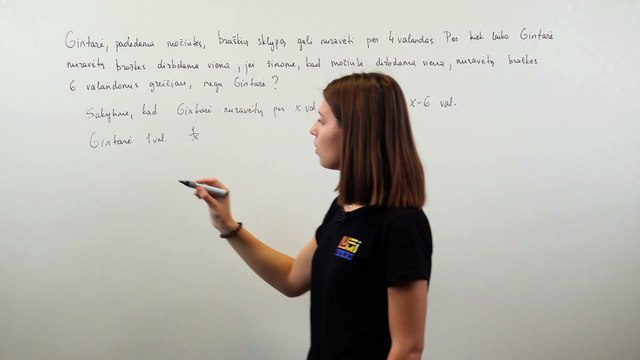 Gintarė, padedama močiutės, braškių sklypą gali nuravėti per 4 valandas. Per kiek laiko Gintarė
nuravėtų braškes dirbdama viena, jei žinoma, kad močiutė dirbdama viena, nuravėtų braškes
6 valandomis greičiau, negu Gintarė?
Sakykime, kad Gintarė nuravėtų per x val x-6 val.
Gintarė 1 val. 1/x